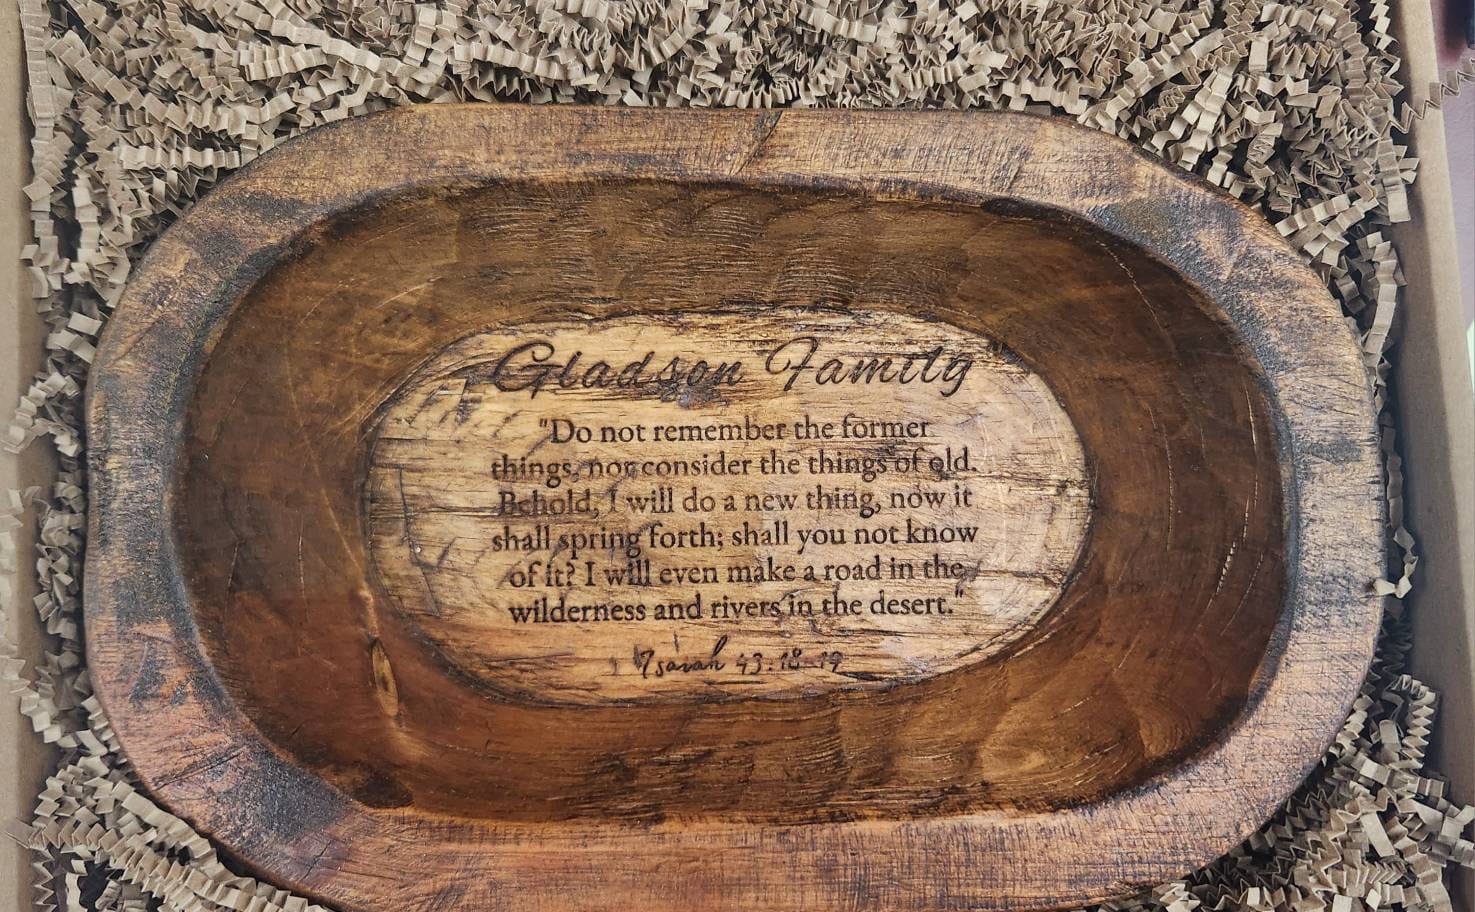 Gladson Family
"Do not remember the former
things, nor consider the things of old.
Behold, I will do a new thing, now it
shall spring forth; shall you not know
of it? I will even make a road in the
wilderness and rivers in the desert."
Isaiah 43:18-19